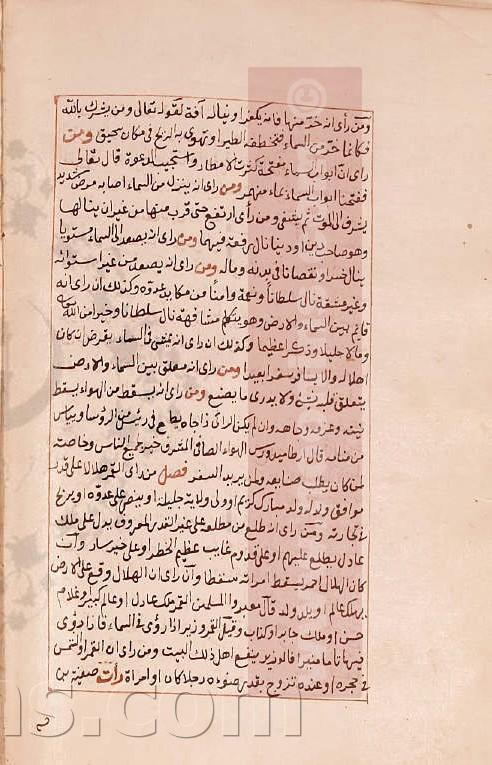 ومن رأى انه خر منها فانه يكفر او يناله آفة لقوله تعالى ومن يشرك بالله
فكانما خر من السماء فتخطفه الطير او تهوي به الريح في مكان سحيق ومن
راى ان ابواب السماء مفتحة كثرت الامطار واستجيب الدعوة قال تعالى
ففتحنا ابواب السماء بماء منهمر ومن راى انه ينزل من السماء اصابه مرض شديد
يشرف الى الموت ثم ومن راى ارتفع حتى قرب منها من غير ان ينالها
وهو صاحب دين او دنيا نال رفعة فيهما ومن راى انه يصعد الى السماء مستويا
ينال خسرا ونقصانا في بدنه وماله ومن راى انه يصعد من غير استوائه
وغير مشقة نال سلطانا ونعمة وامنا من مكايد عدوه وكذلك ان راى انه
قايم بين السماء والارض وهو يتكلم نال سلطانا وخيرا من الله
ومالا جليلا وذكرا عظيما وكذلك ان راى انه يمشي في السماء ان كان
اهلا له والا يسافر سفرا بعيدا ومن راى انه معلق بين السماء والارض
يتعلق قلبه بشئ ولا يدري ما يصنع ومن راى انه يسقط من الهواء يسقط
نيته وعزمه وجاهه وان لم يكن لرائي ذا جاه يطمع في رئيس من الرؤسا وييأس
من منامه قال ارطاميدورس الهواء الصافي المشرق خير لجميع الناس وخاصة
لمن كان يطلب ضايعه ولمن يريد السفر فصل من راى القمر هلالا على قدر
موافق ولد له ولد مبارك كريم او ولي ولاية جليلة او ينصر على عدوه او يربح
في تجارته ومن راى انه طلع من مطلعه على غير القدر المعروف يدل على ملك
عادل يطلع عليهم او على قدوم غايب عظيم الخطر او على خبر سار وان
كان الهلال احمر يسقط امراته سقطا وان راى ان الهلال وقع على الارض
يهلك عالم او يلد ولد قال معبروا المسلمين القمر ملك عادل او عالم كبير وغلام
حسن او ملك جابر او كتاب وقيل القمر وزير اذا رؤي في السماء فاذا رؤي
فيها تاما منيرا فالوزير ينفع اهل ذلك البيت ومن راى ان القمر او الشمس
في حجره او عنده تزوج بقدر ضوءه رجلا كان او امراة رات صفية بن